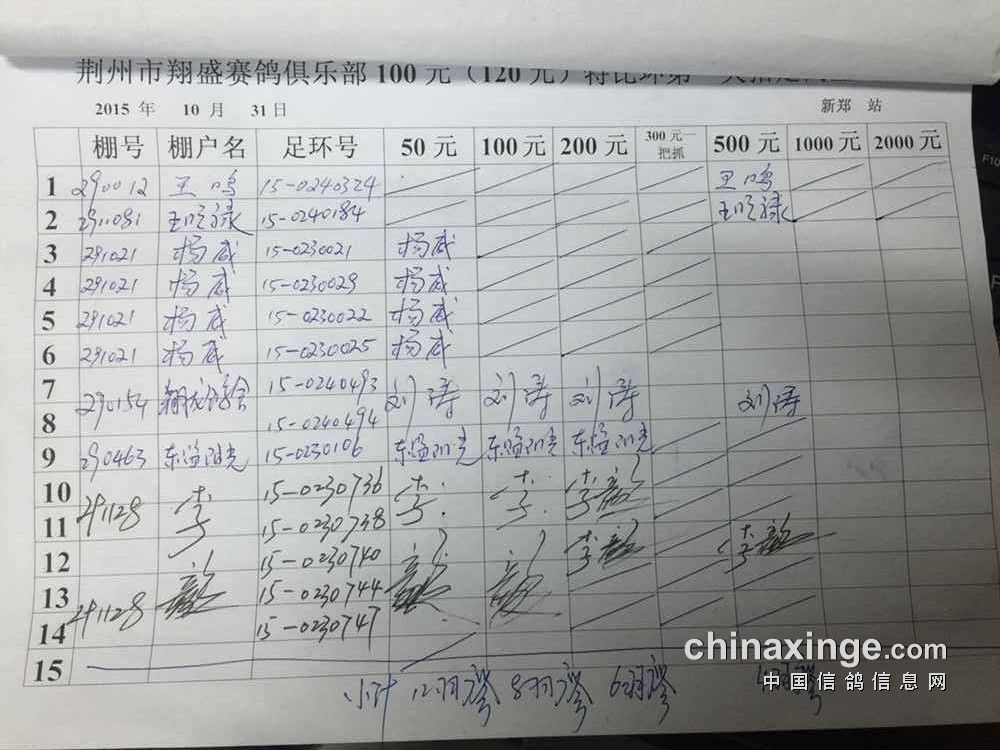 荆州市翔盛赛鸽俱乐部 100 元（120 元）特比环第一关指定
2015 年 10 月 31 日 新郑 站
棚号 棚户名 足环号 50 元 100 元 200 元 300 元一把抓 500 元 1000 元 2000 元
1 290012 王鸣 15-0240324 王鸣
2 2911081 15-0240184
3 291021 杨威 15-0230021 杨威
4 291021 杨威 15-0230029 杨威
5 291021 杨威 15-0230022 杨威
6 291021 杨威 15-0230025 杨威
7 290154 15-0240493 刘涛 刘涛 刘涛 刘涛
8 15-0240494
9 290463 15-0230106
10 291128 李 15-0230736 李 李 李
11 15-0230738
12 15-0230740 李 李
13 291128 15-0230744
14 15-0230747
15
小计 12羽 8羽 6羽 4羽
chinaxinge.com
中国信鸽信息网
F10